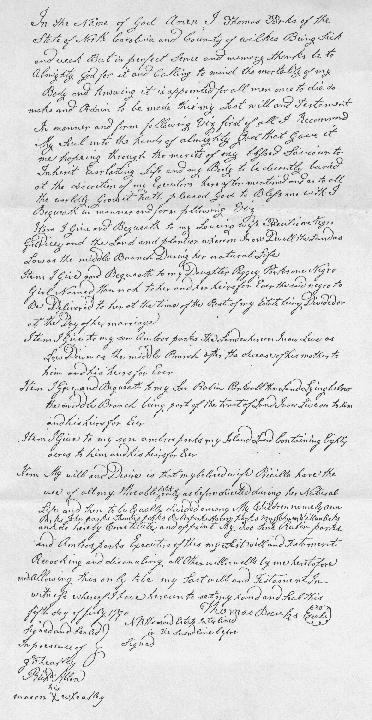 In the Name of God Amen I Thomas Parks of the
State of North Carolina and County of wilkes Being Sick
and week But in perfect Sence and memory thanks be to
Almighty God for it and Calling to mind the mortality of my
Body and knowing it is appointed for all men once to die do
make and Ordain to be made this my Last will and Testament
In manner and form following Viz first of all I Recommend
My Soul into the hands of almighty God that Gave it
me hopeing through the merits of my blessed Saviour to
Inherit Everlasting Life and my Body to be decently buried
at the discretion of my Executors hereafter mentiond and as to all
the worldly Goods it hath pleased God to Bless me with I
Bequeath in manner and form following Viz
Item I Give and Bequeath to my Loveing wife
and the Land and plantion whereon I now Dwell the Land as
Low as the middle Branch During her natural Life
Item I Give and Bequeath to my Daughter Negro
Girl Named Hannah to her and her heirs for Ever the said negro to
Be Delivered to her at the time of the Rest of my Estate being Divided or
at the Day of her marriage
Item I Give to my son Ambros parks the Land whereon I now Live as
Low Down as the middle Branch after the decease of his mother to
him and his heirs for Ever
Item I Give and Bequeath to my Son all the Land Lying below
the middle Branch being part of the tract of Land I now Live on to him
and his heirs for Ever
Item I Give to my son ambros parks my Island Land Containing Eighty
acres to him and his heirs for Ever
Item My will and Desire is that my beloved wife Pricilla have the
use of all my Estate during her Natural
Life and then to be Equally divided among My Children namely
and do hereby Constitute and appoint My Son Reuben parks
and Ambros parks Executors of this my Last will and Testament
Revoking and disanulling all Other wills made by me heretofore
and Allowing this only to be my Last will and Testament In
witness whereof I have hereunto set my hand and Seal this
fifth day of July
Thomas Parks
Signed and Sealed
In presence of
Signed
his
mark